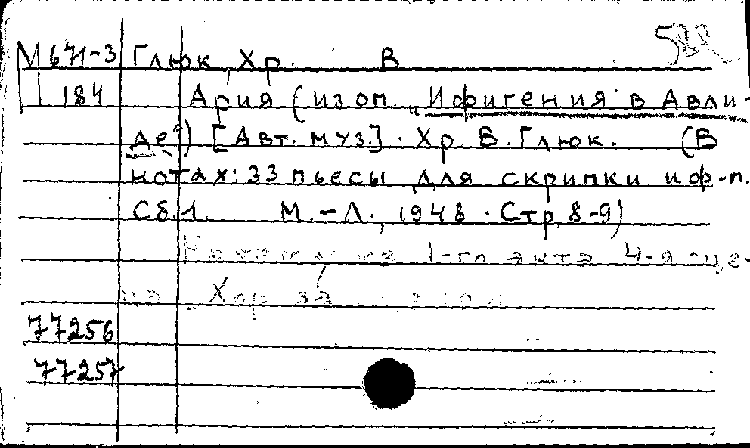 М 671-3 Глюк, Хр. В.
184 Ария (из оп. „Ифигения в Авли-
де“) [Авт. муз.]. Хр. В. Глюк. (В
нотах: 33 пьесы для скрипки и ф-п.
Сб. 1. М.-Л., 1948. Стр. 8-9)
из 1-го акта 4-я сце-
на Хор
77256
77257